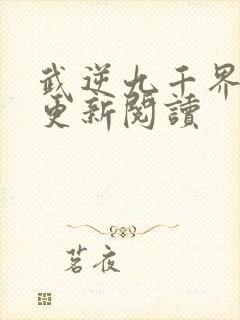 武逆九千界
更新閱讀
茗夜